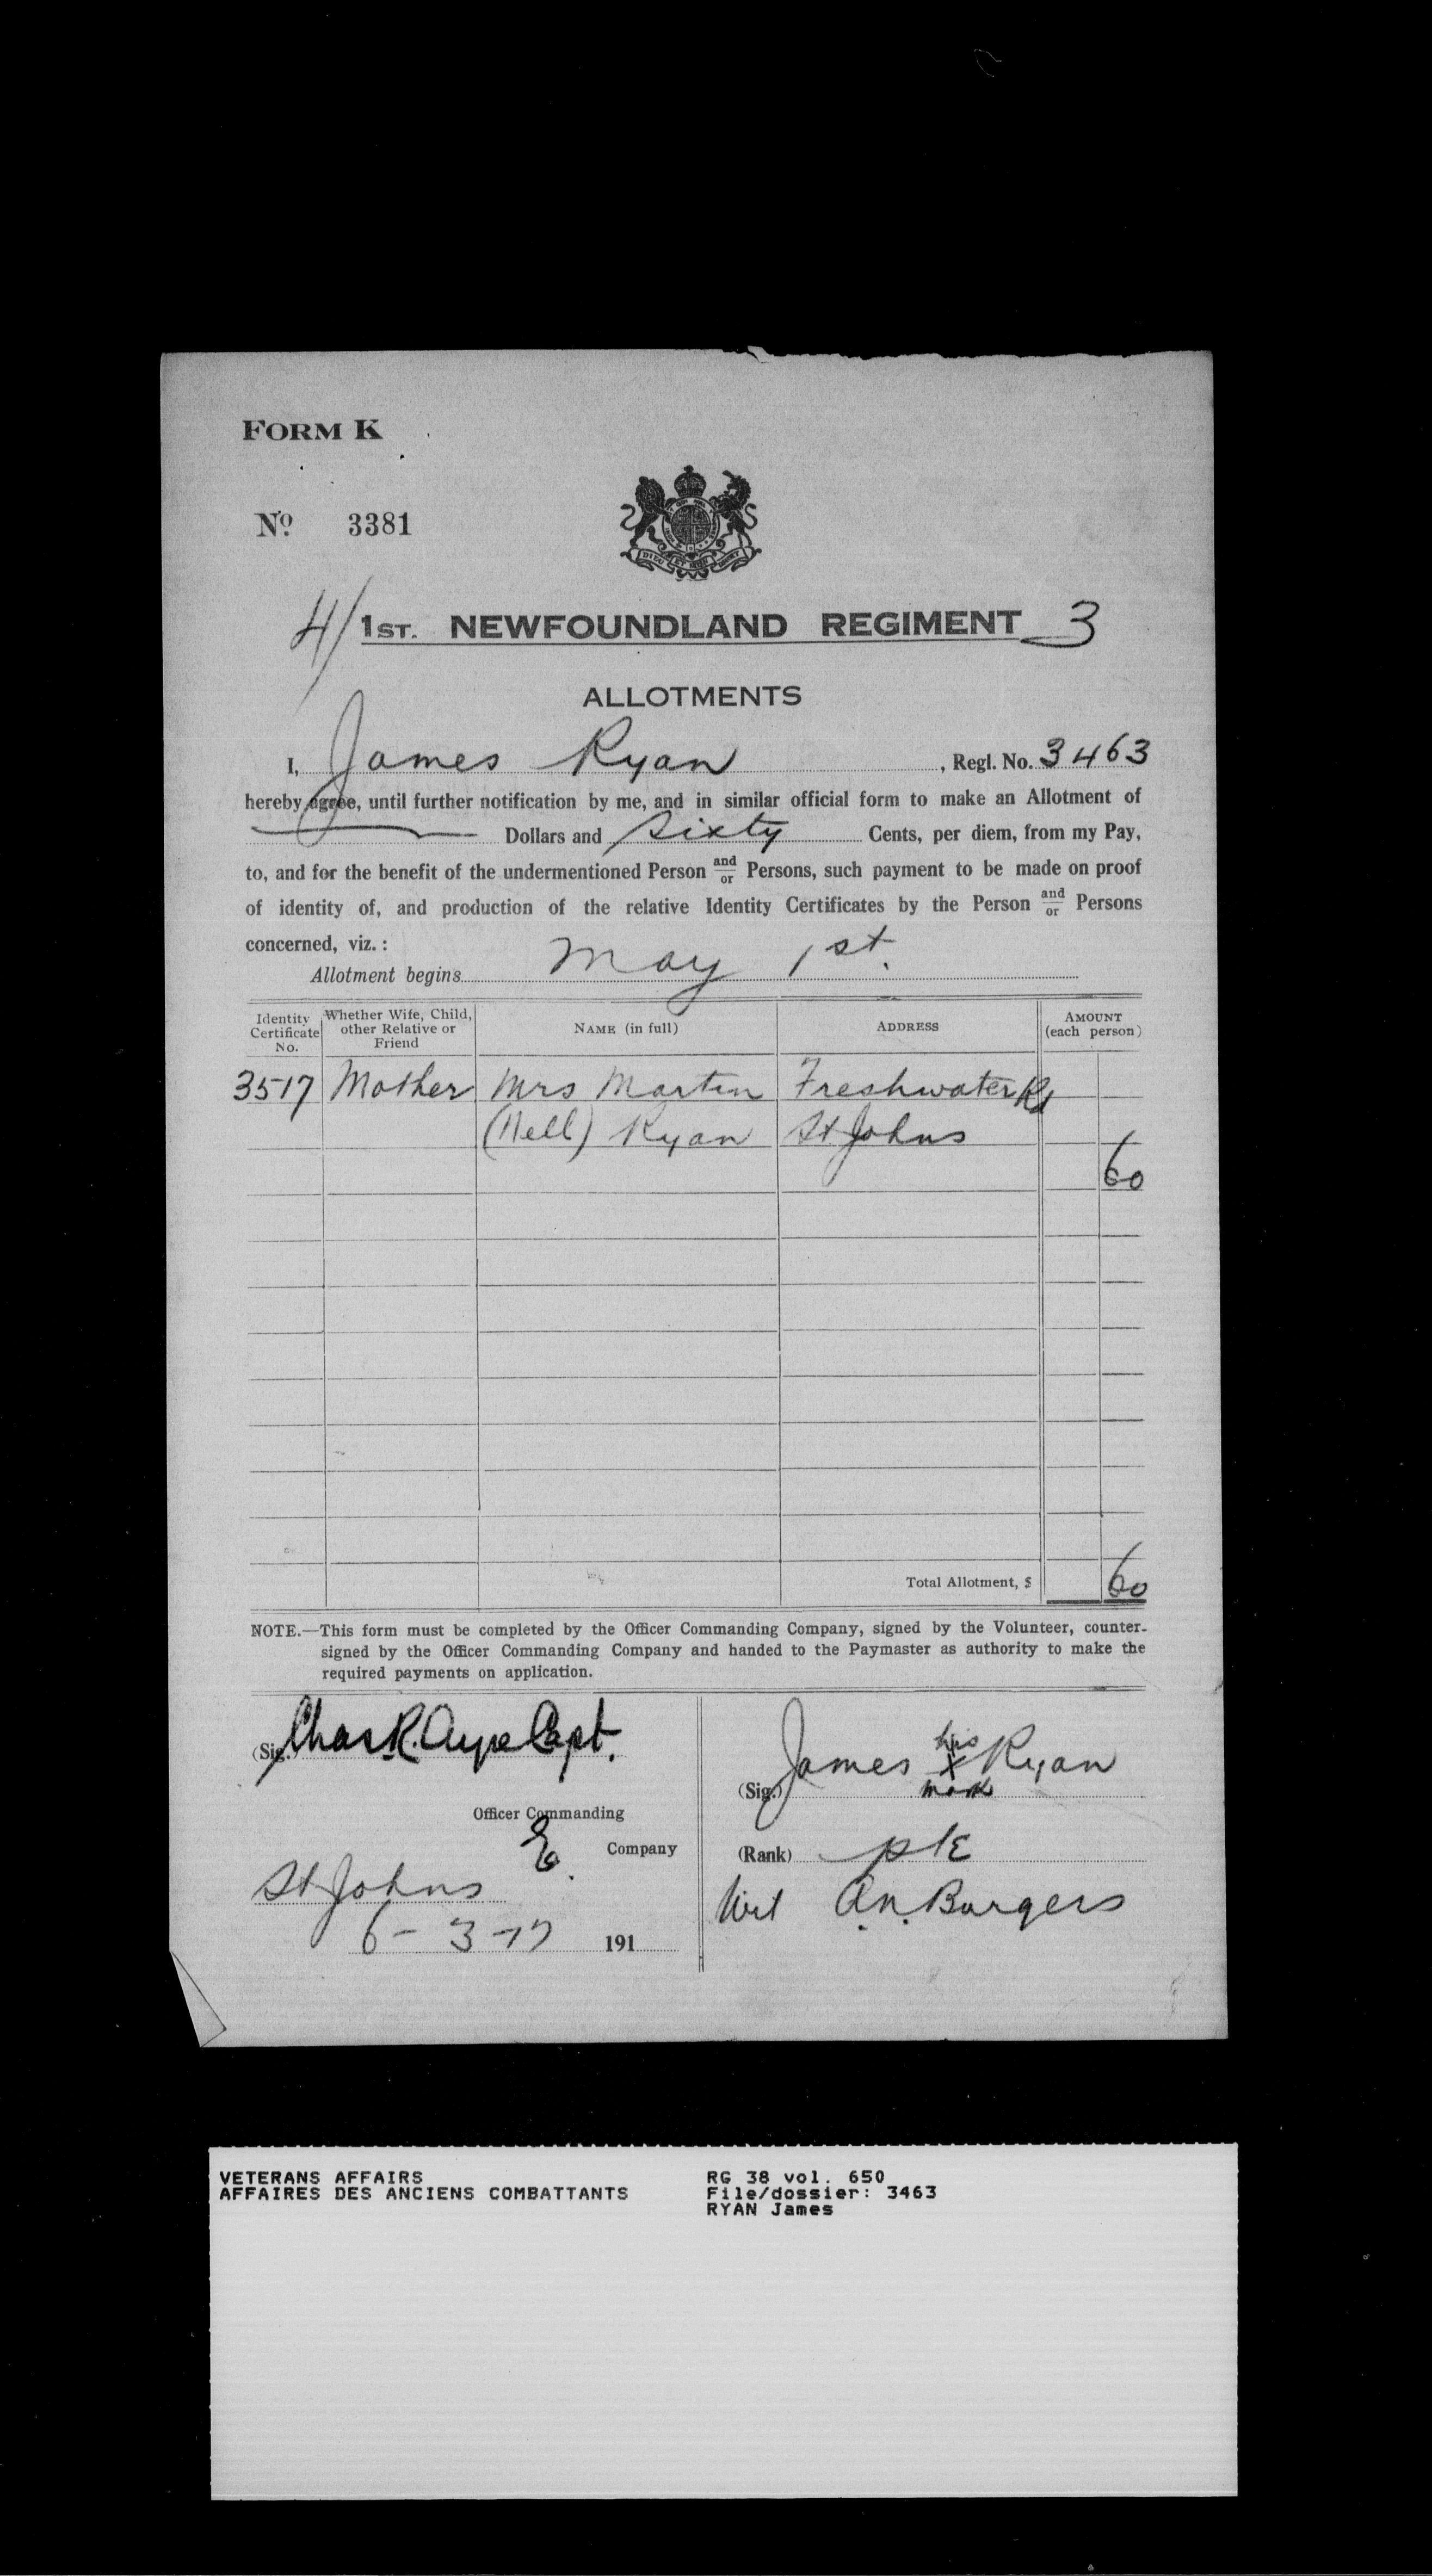 FORM K
No. 3381
DIEU ET MON DROIT
4/ 1ST. NEWFOUNDLAND REGIMENT 3
ALLOTMENTS
I, James Ryan, Regl. No. 3463
hereby agree, until further notification by me, and in similar official form to make an Allotment of
— Dollars and Sixty Cents, per diem, from my Pay,
to, and for the benefit of the undermentioned Person and/or Persons, such payment to be made on proof
of identity of, and production of the relative Identity Certificates by the Person and/or Persons
concerned, viz.:
Allotment begins May 1st.
Identity Certificate No. Whether Wife, Child, other Relative or Friend NAME (in full) ADDRESS AMOUNT (each person)
3517 Mother Mrs Martin Freshwater Rd
(Nell) Ryan St Johns
60
Total Allotment, $ 60
NOTE.—This form must be completed by the Officer Commanding Company, signed by the Volunteer, counter-
signed by the Officer Commanding Company and handed to the Paymaster as authority to make the
required payments on application.
(Sig.) Chas R. Ayre Capt.
Officer Commanding
E Company
St Johns
6-3-17 191
(Sig.) James his X mark Ryan
(Rank) pte
Wit A.N. Burgers
VETERANS AFFAIRS
AFFAIRES DES ANCIENS COMBATTANTS
RG 38 vol. 650
File/dossier: 3463
RYAN James